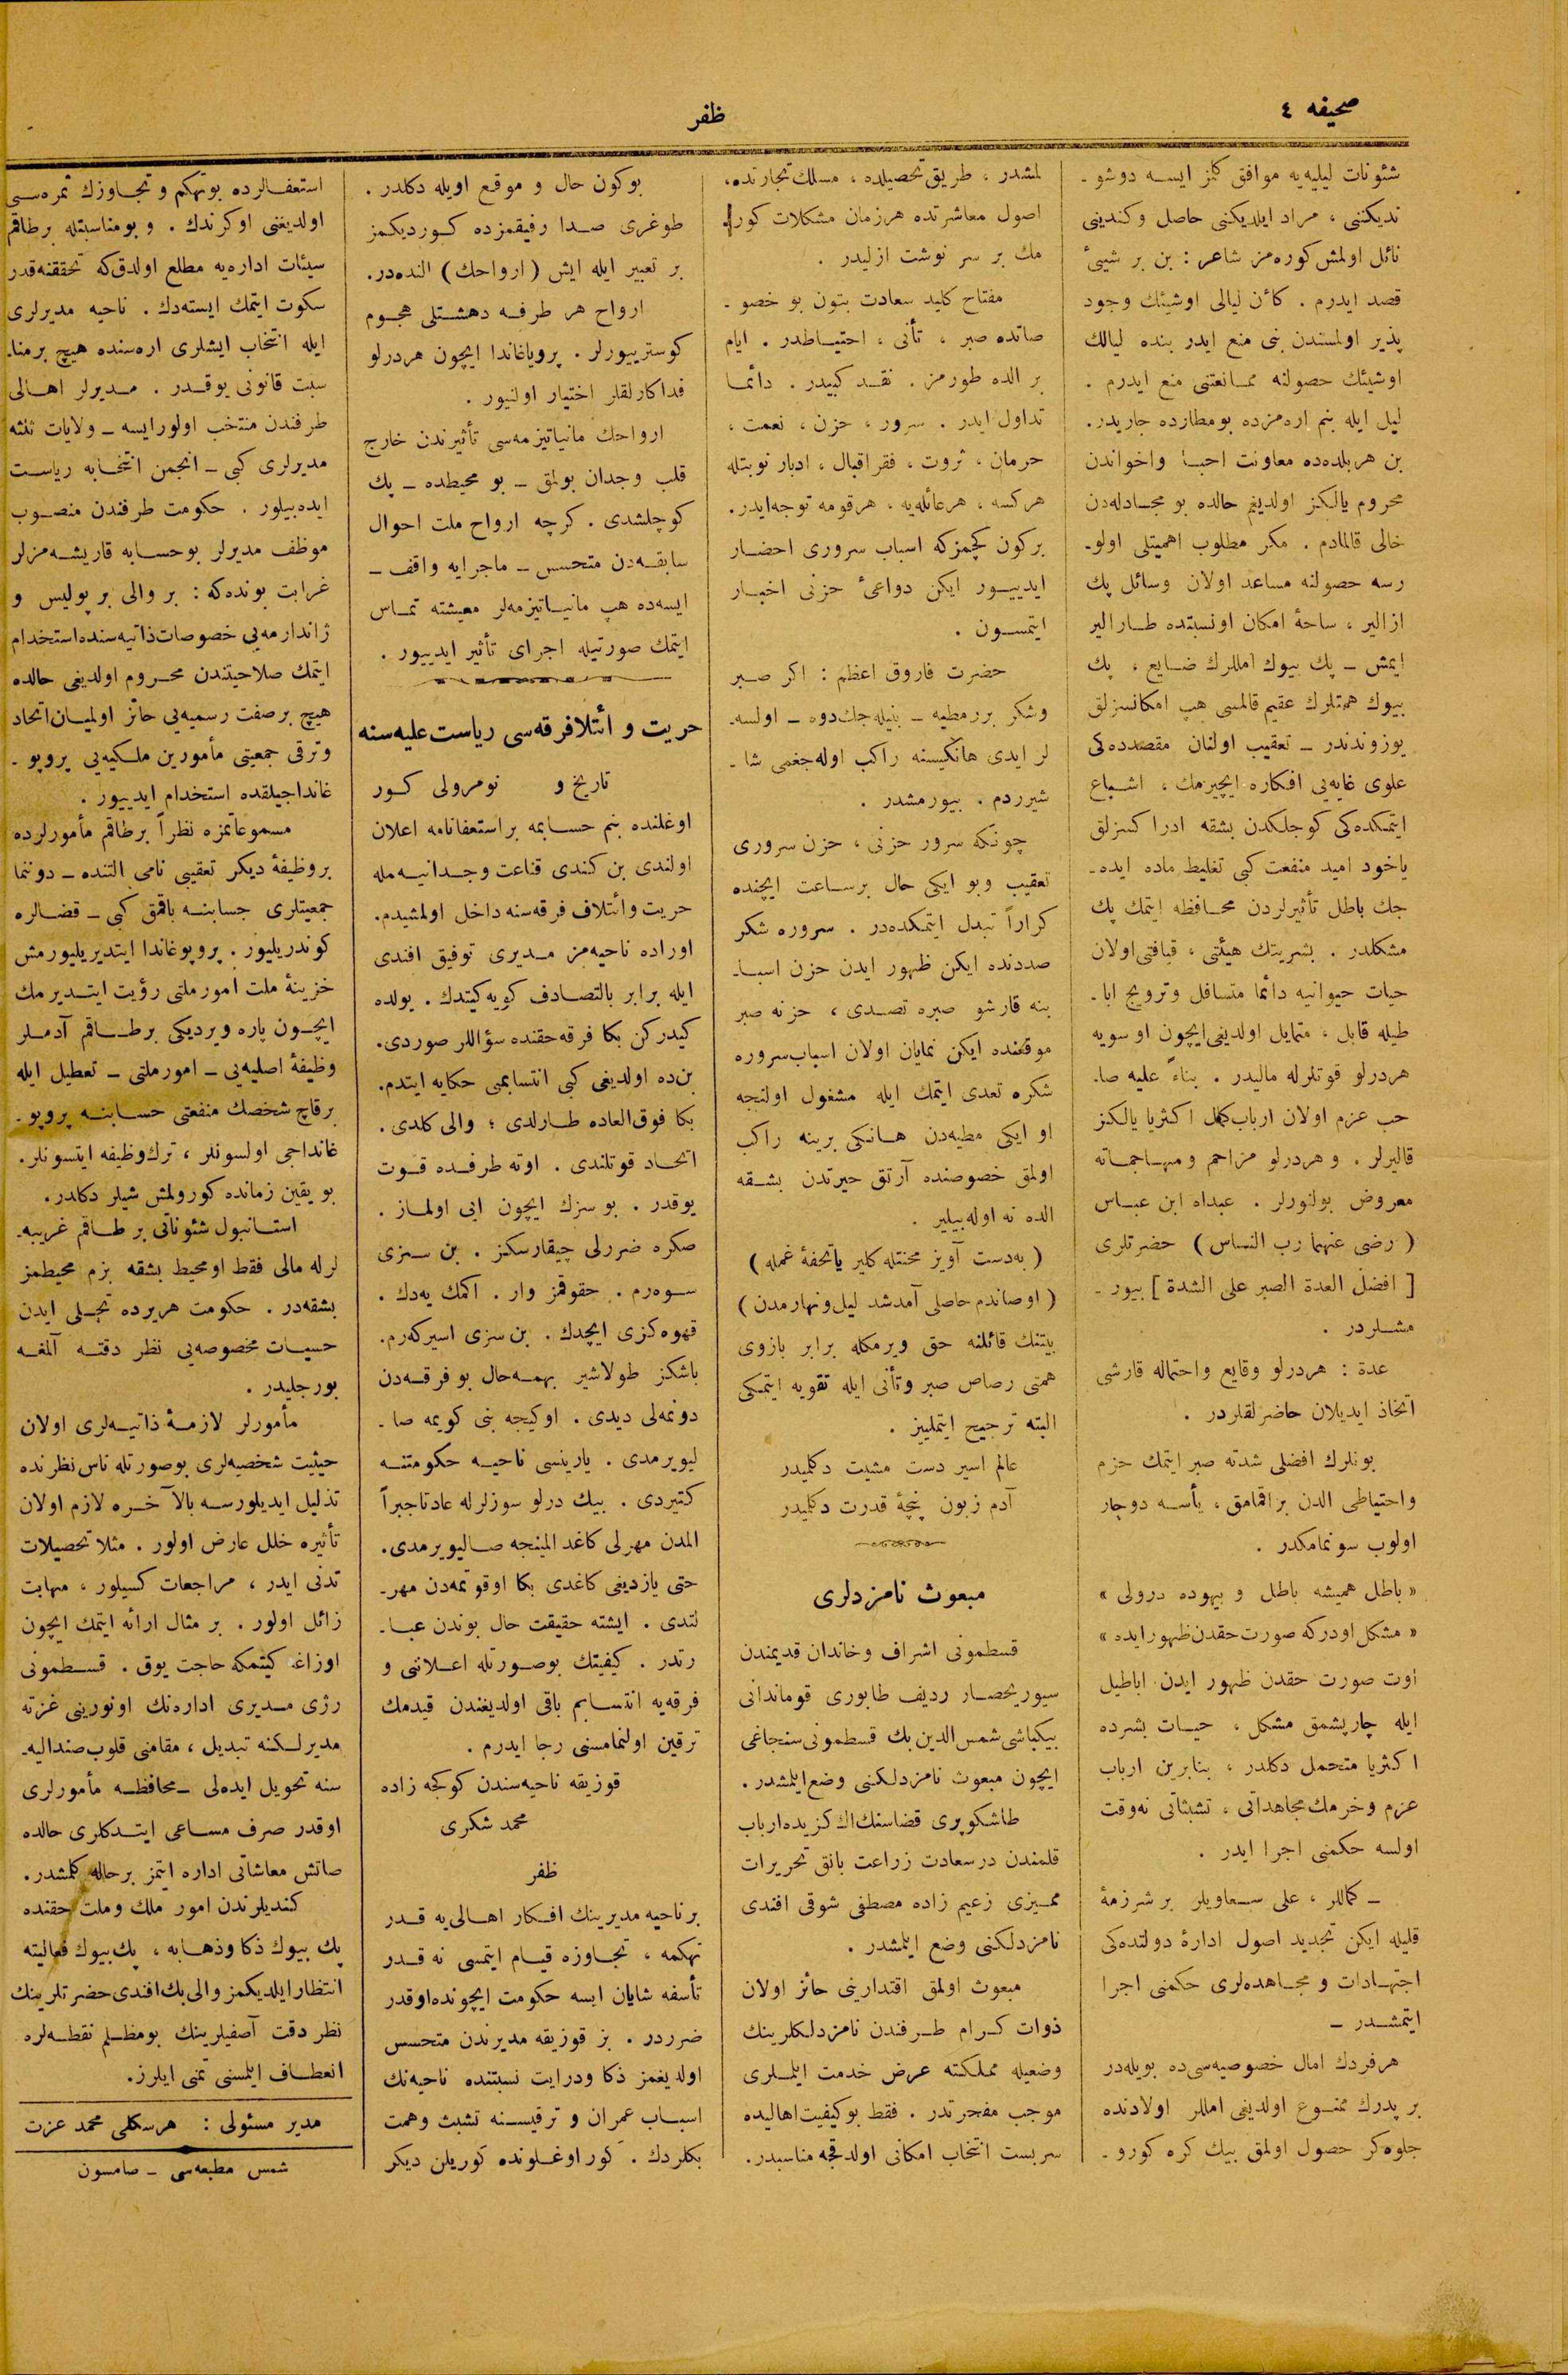 صحیفه ٤
ظفر
شئونات لیلیه‌یه موافق كلز ایسه دوشو ـ
ندیكنی ، مراد ایلدیكنی حاصل وكندینی
نائل اولمش كوره‌مز شاعر : بن بر شیئ
قصد ایدرم . كأن لیالی اوشیئك وجود
پذیر اولمسندن بنی منع ایدر بنده لیالك
اوشیئك حصولنه ممانعتنی منع ایدرم .
لیل ایله بنم اره‌مزده بومطارده جاریدر.
بن هربلده‌ده معاونت احبا واخواندن
محروم یالكز اولدیغم حالده بو مجادله‌دن
خالی قالمادم . مكر مطلوب اهمیتلی اولو ـ
رسه حصولنه مساعد اولان وسائل پك
ازالیر ، ساحهٔ امكان اونسبتده طارالیر
ایمش ـ پك بیوك املارك ضایع ، پك
بیوك همتلرك عقیم قالمسی هپ امكانسزلق
یوزوندندر ـ تعقیب اولنان مقصدده‌كی
علوی غایه‌یی افكاره ایچیرمك ، اشباع
ایتمكده‌كی كوجلكدن بشقه ادراكسزلق
یاخود امید منفعت كبی تغلیط ماده ایده ـ
جك باطل تأثیرلردن محافظه ایتمك پك
مشكلدر . بشریتك هیئتی ، قیافتی اولان
حیات حیوانیه دائما متسافل وترویج ابا ـ
طیله قابل ، متمایل اولدیغی ایچون او سویه
هردرلو قوتلرله مالیدر . بناءً علیه صا ـ
حب عزم اولان ارباب كمال اكثریا یالكز
قالیرلر . و هردرلو مزاحم ومهاجماته
معروض بولنورلر . عبداه ابن عباس
( رضی عنهما رب الناس ) حضرتلری
[ افضل العدة الصبر علی الشدة ] بیور ـ
مشلردر .
عدة : هردرلو وقایع واحتماله قارشی
اتخاذ ایدیلان حاضرلقلردر .
بونلرك افضلی شدته صبر ایتمك حزم
واحتیاطی الدن براقمامق ، یأسه دوچار
اولوب سونمامكدر .
« باطل همیشه باطل و بیهوده درولی »
« مشكل اودركه صورت حقدن ظهور ایده »
اوت صورت حقدن ظهور ایدن اباطیل
ایله چارپیشمق مشكل ، حیات بشرده
اكثریا متحمل دكلدر ، بنابرین ارباب
عزم وخرمك مجاهداتی ، تشبثاتی نه‌وقت
اولسه حكمنی اجرا ایدر .
ـ كماللر ، علی سعاویلر بر شرزمهٔ
قلیله ایكن تجدید اصول ادارهٔ دولتده‌كی
اجتهادات و مجاهده‌لری حكمنی اجرا
ایتمشدر ـ
هرفردك امال خصوصیه‌سی ده بویله‌در
بر پدرك ممنوع اولدیغی امللر اولادنده
جلوه‌كر حصول اولمق بیك كره كورو ـ
لمشدر ، طریق تحصیلده ، مسلك تجارتده،
اصول معاشرتده هرزمان مشكلات كور ـ
مك بر سر نوشت ازلیدر .
مفتاح كلید سعادت بتون بو خصو ـ
صاتده صبر ، تأنی ، احتیاطدر . ایام
بر الده طورمز . نقد كبیدر . دائما
تداول ایدر . سرور ، حزن ، نعمت ،
حرمان ، ثروت ، فقر اقبال ، ادبار نوبتله
هركسه ، هرعائله‌یه ، هرقومه توجه‌ایدر.
بركون كچمزكه اسباب سروری احضار
ایدییور ایكن دواعیٔ حزنی اخبار
ایتمسون .
حضرت فاروق اعظم : اكر صبر
وشكر بررمطیه ـ بنیله‌جك‌دوه ـ اولسه ـ
لر ایدی هانكیسنه راكب اوله‌جغمی شا ـ
شیرردم . بیورمشدر .
چونكه سرور حزنی ، حزن سروری
تعقیب وبو ایكی حال برساعت ایچنده
كراراً تبدل ایتمكده‌در . سروره شكر
صددنده ایكن ظهور ایدن حزن اسبا ـ
بنه قارشو صبره تصدی ، حزنه صبر
موقعنده ایكن نمایان اولان اسباب سروره
شكره تعدی ایتمك ایله مشغول اولنجه
او ایكی مطیه‌دن هانكی برینه راكب
اولمق خصوصنده آرتق حیرتدن بشقه
الده نه اوله‌بیلیر .
( به‌دست آویز محنتله كلیر یاتحفهٔ غمله )
( اوصاندم حاصلی آمدشد لیل ونهارمدن )
بیتنك قائلنه حق ویرمكله برابر بازوی
همتی رصاص صبر وتأنی ایله تقویه ایتمكی
البته ترجیح ایتملییز .
عالم اسیر دست مشیت دكلمیدر
آدم زبون پنچهٔ قدرت دكلمیدر
مبعوث نامزدلری
قسطمونی اشراف وخاندان قدیمندن
سیوریحصار ردیف طابوری قوماندانی
بیكباشی شمس‌الدین بك قسطمونی سنجاغی
ایچون مبعوث نامزدلكنی وضع ایلمشدر.
طاشكوپری قضاسنك‌اك كزیده‌ارباب
قلمندن درسعادت زراعت بانق تحریرات
ممیزی زعیم زاده مصطفی شوقی افندی
نامزدلكنی وضع ایلمشدر .
مبعوث اولمق اقتدارینی حائز اولان
ذوات كرام طرفندن نامزدلكلرینك
وضعیله مملكته عرض خدمت ایلملری
موجب مفخرتدر . فقط بو كیفیت اهالیده
سربست انتخاب امكانی اولدقجه مناسبدر.
بوكون حال و موقع اویله دكلدر .
طوغری صدا رفیقمزده كوردیكمز
بر تعبیر ایله ایش ( ارواحك ) النده‌در.
ارواح هر طرفه دهشتلی هجوم
كوسترییورلر . پروپاغاندا ایچون هردرلو
فداكارلقلر اختیار اولنیور .
ارواحك مانیاتیزمه‌سی تأثیرندن خارج
قلب وجدان بولمق ـ بو محیطده ـ پك
كوچلشدی . كرچه ارواح ملت احوال
سابقه‌دن متحسس ـ ماجرایه واقف ـ
ایسه‌ده هپ مانیاتیزمه‌لر معیشته تماس
ایتمك صورتیله اجرای تأثیر ایدییور .
حریت و ائتلاف‌فرقه‌سی ریاست علیه‌سنه
تاریخ و نومرولی كور
اوغلنده بنم حسابمه براستعفانامه اعلان
اولندی بن كندی قناعت وجدانیه‌مله
حریت وائتلاف فرقه‌سنه داخل اولمشیدم.
اوراده ناحیه‌مز مدیری توفیق افندی
ایله برابر بالتصادف كویه كیتدك . یولده
كیدركن بكا فرقه حقنده سؤاللر صوردی.
بن‌ده اولدیغی كبی انتسابمی حكایه ایتدم.
بكا فوق‌العاده طارلدی ؛ والی كلدی .
اتحاد قوتلندی . اوته طرفده قوت
یوقدر . بو سزك ایچون ایی اولماز .
صكره ضررلی چیقارسكز . بن سزی
سوه‌رم . حقوقمز وار . اكمك یه‌دك .
قهوه‌كزی ایچدك . بن سزی اسیركه‌رم.
باشكز طولاشیر بهمه‌حال بو فرقه‌دن
دونمه‌لی دیدی . اوكیجه بنی كویمه صا ـ
لیویرمدی . یارینسی ناحیه حكومتنه
كتیردی . بیك درلو سوزلرله عادتا جبراً
المدن مهرلی كاغد المینجه صالیویرمدی.
حتی یازدیغی كاغدی بكا اوقوتمه‌دن مهر ـ
لتدی . ایشته حقیقت حال بوندن عبا ـ
رتدر . كیفیتك بوصورتله اعلاننی و
فرقه‌یه انتسابم باقی اولدیغندن قیدمك
ترقین اولنمامسنی رجا ایدرم .
قوزیقه ناحیه‌سندن كوكجه زاده
محمد شكری
ظفر
بر ناحیه مدیرینك افكار اهالی‌یه قدر
تهكمه ، تجاوزه قیام ایتمسی نه قدر
تأسفه شایان ایسه حكومت ایچونده‌اوقدر
ضرردر . بز قوزیقه مدیرندن متحسس
اولدیغمز ذكا ودرایت نسبتنده ناحیه‌نك
اسباب عمران و ترقیسنه تشبث وهمت
بكلردك . كور اوغلونده كوریلن دیكر
استعفالرده بوتهكم وتجاوزك ثمره‌سی
اولدیغنی اوكرندك . و بومناسبتله برطاقم
سیئات اداره‌یه مطلع اولدق‌كه تحققنه‌قدر
سكوت ایتمك ایسته‌دك . ناحیه مدیرلری
ایله انتخاب ایشلری اره‌سنده هیچ برمنا ـ
سبت قانونی یوقدر . مدیرلر اهالی
طرفندن منتخب اولورایسه ـ ولایات ثلثه
مدیرلری كبی ـ انجمن انتخابه ریاست
ایده‌بیلور . حكومت طرفندن منصوب
موظف مدیرلر بوحسابه قاریشه‌مزلر
غرابت بونده‌كه : بر والی بر پولیس و
ژاندارمه‌یی خصوصات‌ذاتیه‌سنده‌استخدام
ایتمك صلاحیتندن محروم اولدیغی حالده
هیچ برصفت رسمیه‌یی حائز اولمیان‌اتحاد
وترقی جمعیتی مأمورین ملكیه‌یی پروپو ـ
غانداجیلقده استخدام ایدییور .
مسموعاتمزه نظراً برطاقم مأمورلرده
بروظیفهٔ دیكر تعقیبی نامی التنده ـ دوننما
جمعیتلری حسابنه باقمق كبی ـ قضالره
كوندریلیور . پروپوغاندا ایتدیریلیورمش
خزینهٔ ملت امورملتی رؤیت ایتدیرمك
ایچون پاره ویردیكی برطاقم آدملر
وظیفهٔ اصلیه‌یی ـ امورملتی ـ تعطیل ایله
برقاچ شخصك منفعتی حسابنه پروپو ـ
غانداجی اولسونلر ، ترك‌وظیفه ایتسونلر.
بو یقین زمانده كورولمش شیلر دكلدر.
استانبول شئوناتی بر طاقم غریبه ـ
لرله مالی فقط اومحیط بشقه بزم محیطمز
بشقه‌در . حكومت هریرده تجلی ایدن
حسیات مخصوصه‌یی نظر دقته آلمغه
بورجلیدر .
مأمورلر لازمهٔ ذاتیه‌لری اولان
حیثیت شخصیه‌لری بوصورتله ناس نظرنده
تذلیل ایدیلورسه بالآخره لازم اولان
تأثیره خلل عارض اولور . مثلا تحصیلات
تدنی ایدر ، مراجعات كسیلور ، مهابت
زائل اولور . بر مثال ارائه ایتمك ایچون
اوزاغه كیتمكه حاجت یوق . قسطمونی
رژی مدیری اداره‌نك اونورینی غزته
مدیرلكنه تبدیل ، مقامنی قلوب صندالیه ـ
سنه تحویل ایده‌لی ـ محافظه مأمورلری
اوقدر صرف مساعی ایتدكلری حالده
صاتش معاشاتی اداره ایتمز برحاله كلمشدر.
كندیلرندن امور ملك وملت حقنده
پك بیوك ذكا وذهابه ، پك بیوك فعالیته
انتظار ایلدیكمز والی بك‌افندی حضرتلرینك
نظر دقت آصفیلرینك بومظلم نقطه‌لره
انعطاف ایلمسنی تمنی ایلرز.
مدیر مسئولی : هرسكلی محمد عزت
شمس مطبعه‌سی ـ صامسون